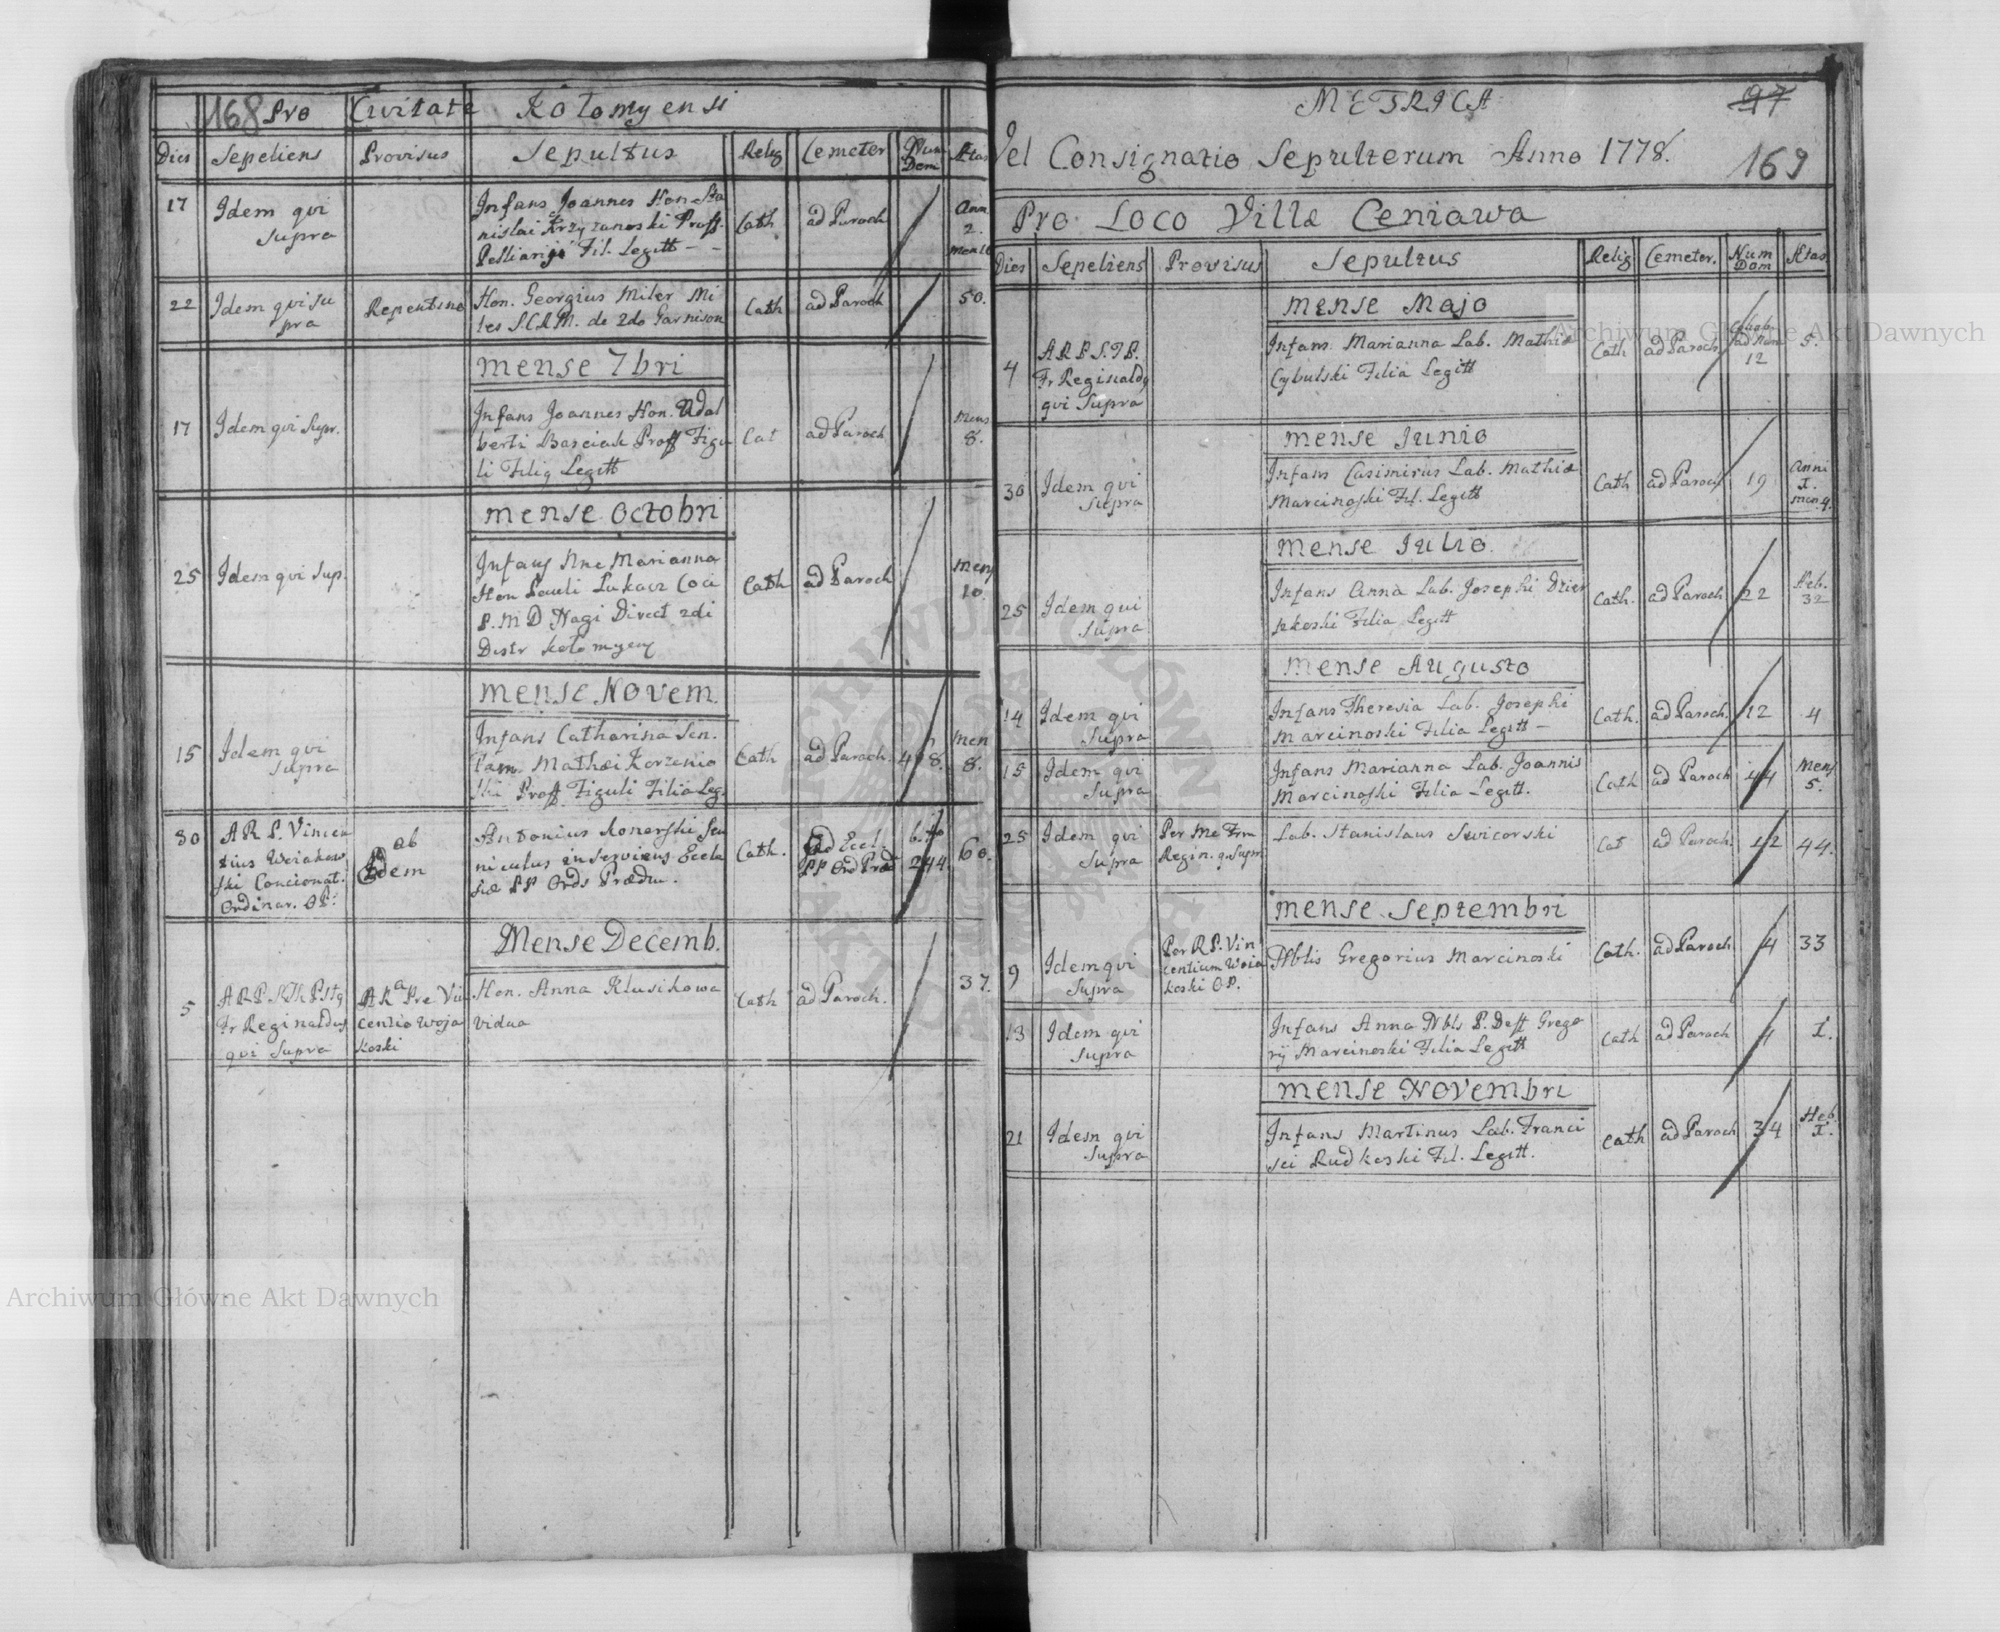 168 Pro Civitate Kołomyensi
Dies Sepeliens Provisus Sepultus Relig Cemeter Num Dom Ætas
17 Idem qui supra
Infans Joannes Hon. Sta
nislai Krzyzanoski Proff.
Pelliarij Fil. Legitt
Cath ad Paroch
Ann
2.
22 Idem qui su
pra
Repentino
Hon. Georgius Miler Mi
les S.C.R.M. de 2do Garnison
Cath ad Paroch 50.
Mense 7bri
17 Idem qui Supr.
Infans Joannes Hon. Adal
berti Barciak Proff Figu
li Filiq Legitt
Cat ad Paroch
Mens
8.
Mense Octobri
25 Idem qui Sup.
Infans Nne Marianna
Hon Pauli Lukacz Coci
P. M D Nagi Direct 2di
Distr Kołomyen
Cath ad Paroch
Mens
10.
Mense Novem.
15 Idem qui
supra
Infans Catharina Sen.
Fam. Mathæi Korzenio
ski Proff Figuli Filia Leg.
Cath ad Paroch.
Men
8.
30 A R P. Vincen
tius Woiakow
ski Concionat.
Ordinar. OP.
ab
Eodem
Antonius Konerski Sen
niculus inserviens Eccle
siæ PP Ords Prædic.
Cath. ad Eccl.
PP Ord Præd
244 60.
Mense Decemb.
5 A R P S Th Pstq
Fr Reginaldus
qui supra
A Ra Pre Vin
centio Woja
koski
Hon. Anna Klusikowa
Vidua
Cath ad Paroch. 37.
METRICA 97
Vel Consignatio Sepulterum Anno 1778. 169
Pro Loco Villæ Ceniawa
Dies Sepeliens Provisus Sepultus Relig Cemeter. Num Dom Ætas
Mense Majo
4 A R P S. T P.
Fr Reginaldq
qui supra
Infans Marianna Lab. Mathiæ
Cybulski Filia Legitt
Cath ad Paroch
ad Num
12
5.
Mense Junio
30 Idem qui
supra
Infans Casimirus Lab. Mathiæ
Marcinoski Fil. Legitt
Cath ad Paroch 19
Anni
I.
men. 4.
Mense Julio.
25 Idem qui
supra
Infans Anna Lab. Josephi Dzier
zkoski Filia Legitt
Cath. ad Paroch 22
Heb.
32
Mense Augusto
14 Idem qui
supra
Infans Theresia Lab. Josephi
Marcinoski Filia Legitt
Cath. ad Paroch. 12 4
15 Idem qui
supra
Infans Marianna Lab. Joannis
Marcinoski Filia Legitt.
Cath ad Paroch 44
Mens
5.
25 Idem qui
supra
Per Me Frm
Regin. q. Supr
Lab. Stanislaus Swicorski
Cat ad Paroch. 12 44.
Mense Septembri
9 Idem qui
supra
Per R P. Vin
centium Woia
koski O P.
Nblis Gregorius Marcinoski
Cath. ad Paroch 4 33
13 Idem qui
supra
Infans Anna Nbls P. Deff Grego
rij Marcinoski Filia Legitt
Cath ad Paroch 4 I.
Mense Novembri
21 Idem qui
supra
Infans Martinus Lab. Franci
sci Rudkoski Fil. Legitt.
Cath ad Paroch 34
Heb.
I.
Archiwum Główne Akt Dawnych
Archiwum Główne Akt Dawnych